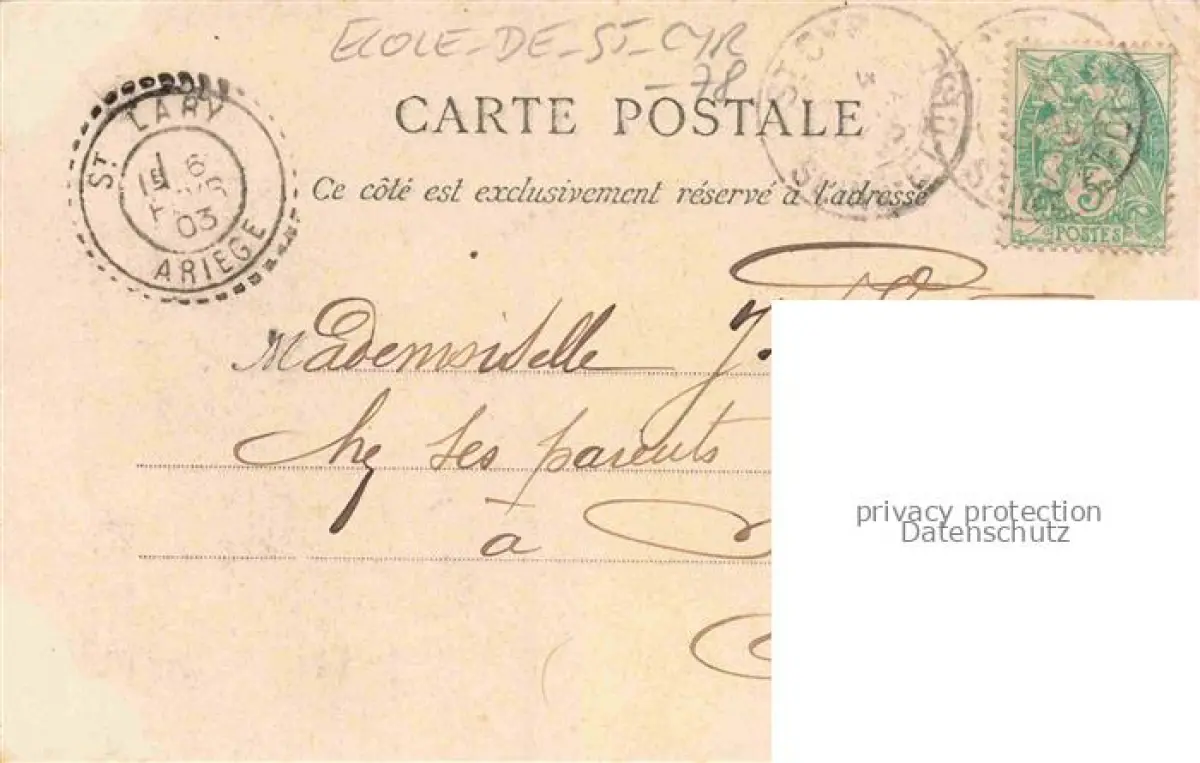 ECOLE-DE-ST-CYR
-78
CARTE POSTALE
Ce côté est exclusivement réservé à l'adresse
ST. LARY
6
03
ARIEGE
ST CYR
5
POSTES
Mademoiselle J.
chez ses parents
à
privacy protection
Datenschutz